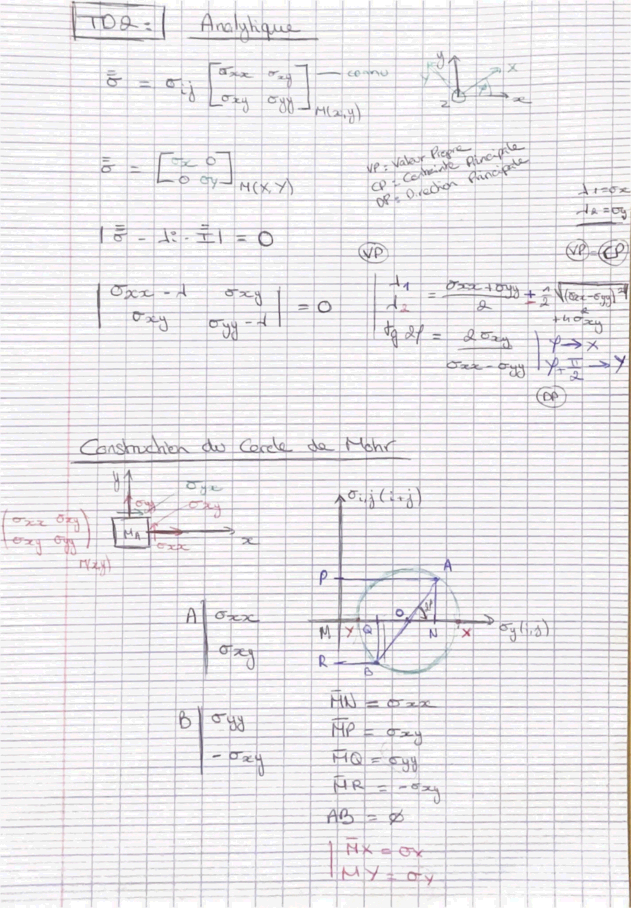 TD2 : Analytique
σ̿ = σij [σxx σxy — connu
σxy σyy] M(x,y)
y
Y
X
φ
z
x
σ̿ = [σX 0
0 σY] M(X,Y)
VP = Valeur Propre
CP = Contrainte Principale
DP = Direction Principale
λ1 = σX
λ2 = σY
VP = CP
|σ̿ - λi · I̿| = 0
VP
|σxx - λ σxy
σxy σyy - λ| = 0
λ1
λ2 = (σxx + σyy)/2 ± 1/2 √((σxx - σyy)² + 4σ²xy)
tg 2φ = 2σxy / (σxx - σyy)
φ → X
φ + π/2 → Y
DP
Construction du Cercle de Mohr
y
σyy
σyx
σxy
(σxx σxy
σxy σyy) M(xy)
MA
σxx
x
σi,j (i≠j)
P
A
M Y Q O 2φ N X
R
B
A | σxx
σxy
B | σyy
- σxy
M̄N = σxx
M̄P = σxy
M̄Q = σyy
M̄R = -σxy
AB = ∅
M̄X = σX
MY = σY